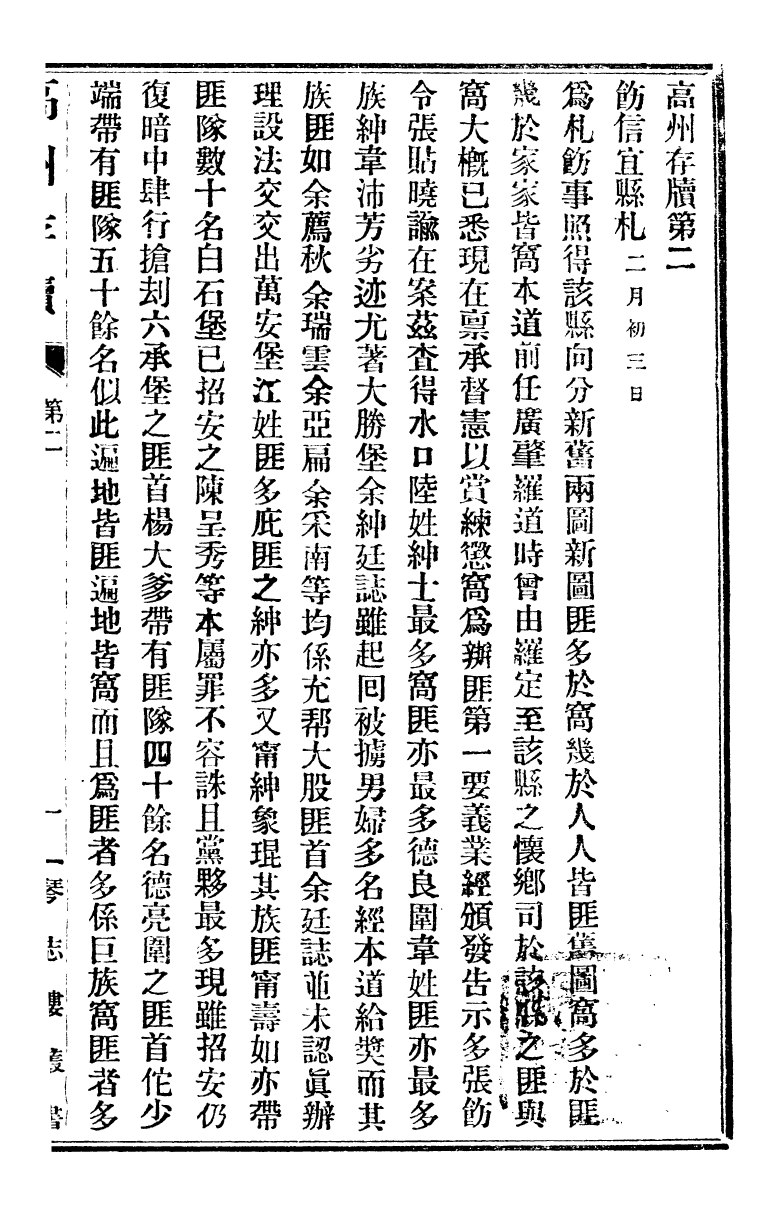 高州存牘第二
飭信宜縣札 二月初三日
爲札飭事照得該縣向分新舊兩圖新圖匪多於窩幾於人人皆匪舊圖窩多於匪
幾於家家皆窩本道前任廣肇羅道時曾由羅定至該縣之懷鄉司於該縣之匪與
窩大槪已悉現在稟承督憲以賞練懲窩爲辦匪第一要義業經頒發告示多張飭
令張貼曉諭在案茲查得水口陸姓紳士最多窩匪亦最多德良圍韋姓匪亦最多
族紳韋沛芳劣迹尤著大勝堡余紳廷誌雖起囘被擄男婦多名經本道給奬而其
族匪如余薦秋余瑞雲余亞扁余采南等均係充帮大股匪首余廷誌並未認眞辦
理設法交交出萬安堡江姓匪多庇匪之紳亦多又甯紳象琨其族匪甯壽如亦帶
匪隊數十名白石堡已招安之陳呈秀等本屬罪不容誅且黨夥最多現雖招安仍
復暗中肆行搶刦六承堡之匪首楊大爹帶有匪隊四十餘名德亮圍之匪首佗少
端帶有匪隊五十餘名似此遍地皆匪遍地皆窩而且爲匪者多係巨族窩匪者多
高州存牘 第二 一 琴志樓叢書